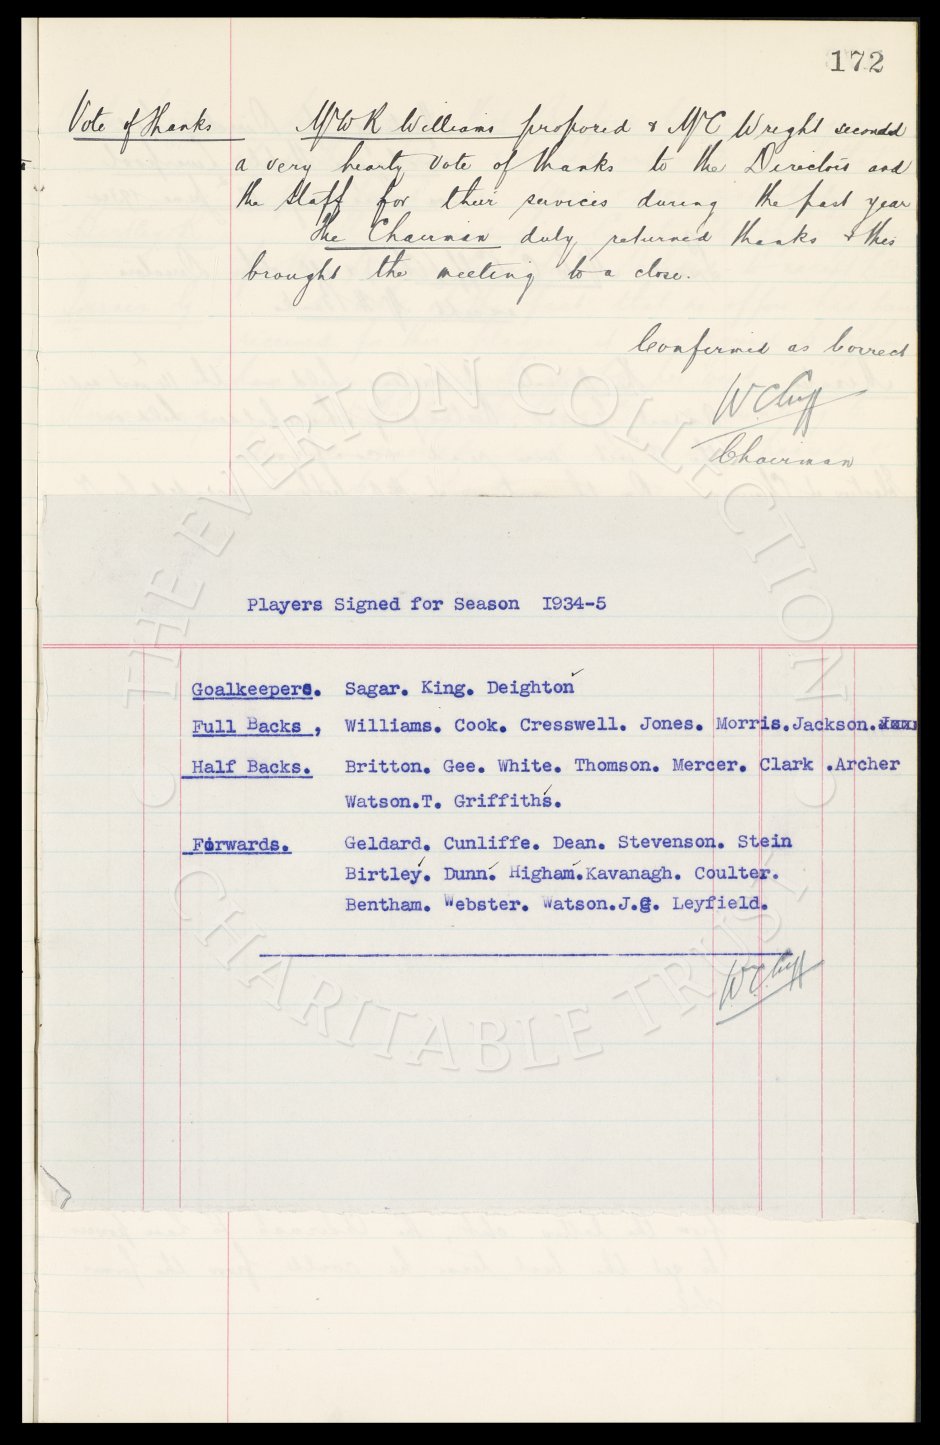 172
Vote of thanks Mr W R Williams proposed & Mr C Wright seconded
a very hearty vote of thanks to the Directors and
the Staff for their services during the past year
The Chairman duly returned thanks & this
brought the meeting to a close.
Confirmed as Correct
W C Cuff
Chairman
Players Signed for Season I934-5
Goalkeepers. Sagar. King. Deighton
Full Backs , Williams. Cook. Cresswell. Jones. Morris.Jackson.
Half Backs. Britton. Gee. White. Thomson. Mercer. Clark .Archer
Watson.T. Griffiths.
Forwards. Geldard. Cunliffe. Dean. Stevenson. Stein
Birtley. Dunn. Higham.Kavanagh. Coulter.
Bentham. Webster. Watson.J.G. Leyfield.
W C Cuff
© THE EVERTON COLLECTION CHARITABLE TRUST